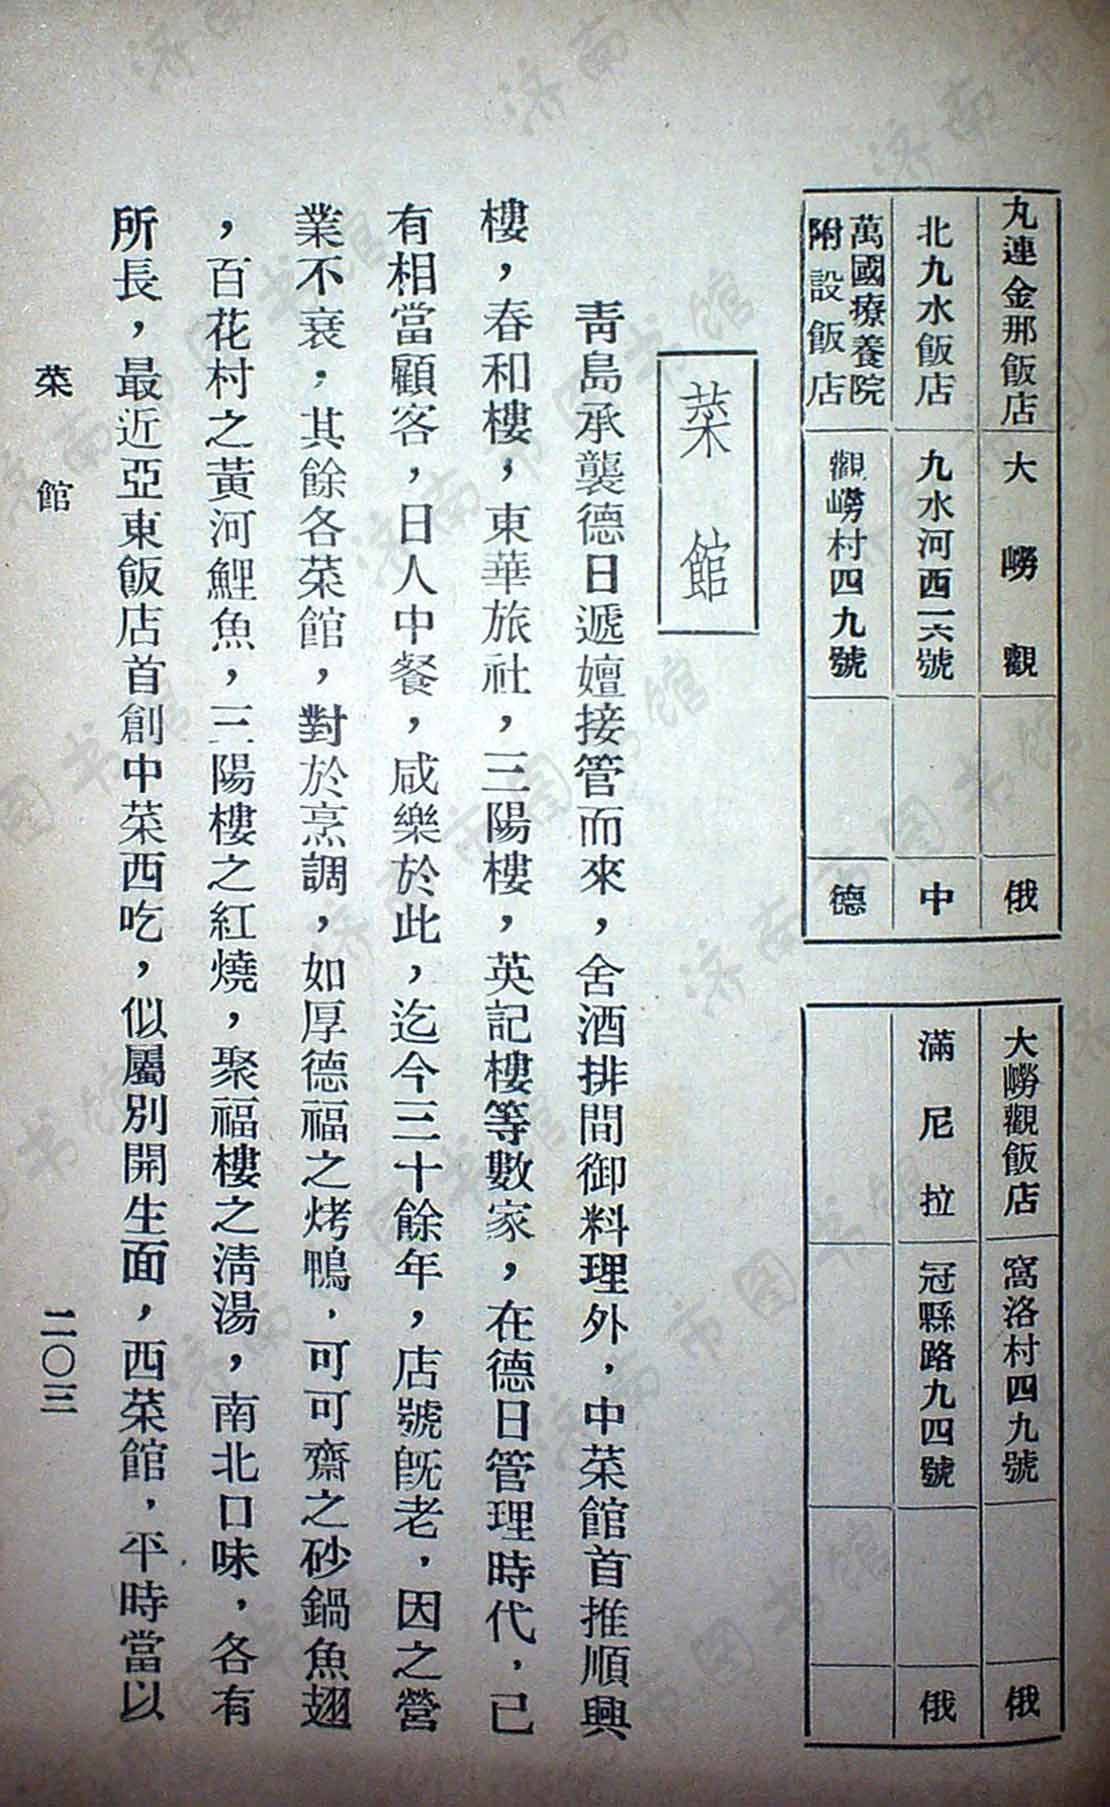 丸連金那飯店 大嶗觀 俄
北九水飯店 九水河西一六號 中
萬國療養院
附設飯店 觀嶗村四九號 德
大嶗觀飯店 窩洛村四九號 俄
滿尼拉 冠縣路九四號 俄
菜館
青島承襲德日遞嬗接管而來，舍酒排間御料理外，中菜館首推順興
樓，春和樓，東華旅社，三陽樓，英記樓等數家，在德日管理時代，已
有相當顧客，日人中餐，咸樂於此，迄今三十餘年，店號旣老，因之營
業不衰，其餘各菜館，對於烹調，如厚德福之烤鴨，可可齋之砂鍋魚翅
，百花村之黃河鯉魚，三陽樓之紅燒，聚福樓之淸湯，南北口味，各有
所長，最近亞東飯店首創中菜西吃，似屬別開生面，西菜館，平時當以
菜館
二〇三
济南市图书馆